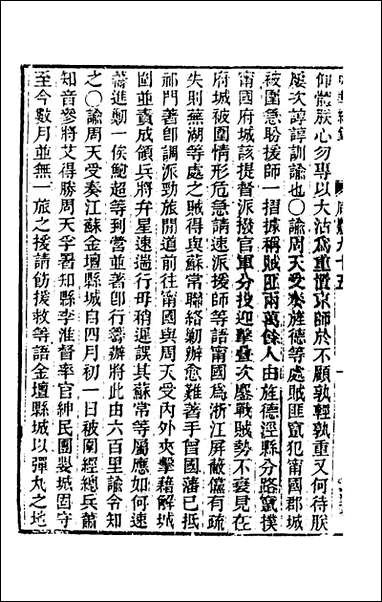 仰體朕心勿專以大沽為重慣京師於不顧孰輕孰重又何待朕
屢次諄諄訓諭也〇諭周天受奏旌德等處賊匪竄犯甯國郡城
被圍急盼援師一摺據稱賊匪兩萬餘人由旌德涇縣分路竄撲
甯國府城該提督派撥官軍分投迎擊疊次鏖戰賊勢不衰見在
府城被圍情形危急請速派援師等語甯國為浙江屏蔽儻有疏
失則蕪湖等處之賊得與蘇常聯絡勦辦愈難著手曾國藩已抵
祁門著即調派勁旅開道前往甯國與周天受內外夾擊藉解城
圍並責成領兵將弁星速遄行毋稍遲誤其蘇常等屬應如何速
籌進勦一俟鮑超等到營並著即行籌辦將此由六百里諭令知
之〇諭周天受奏江蘇金壇縣城自四月初一日被圍經總兵蕭
知音參將艾得勝周天孚署知縣李淮督率官紳民團嬰城固守
至今數月並無一旅之援請飭援救等語金壇縣城以彈丸之地